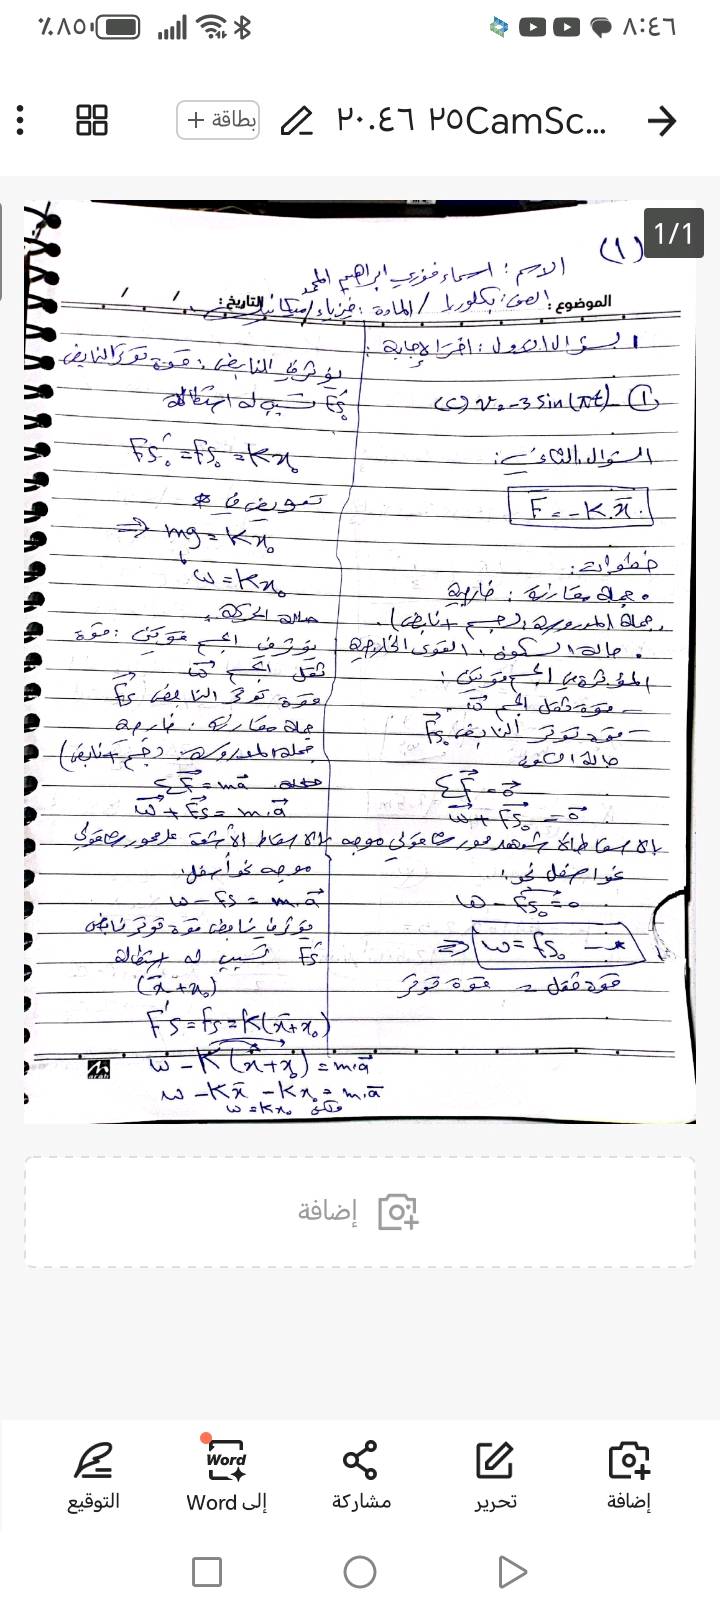 ٪٨٥
٨:٤٦
بطاقة +
٢٠.٤٦ ٢٥CamSc...
1/1
(١)
الاسم: اسماء فوزي ابراهيم
الصف: بكلوريا / المادة: فيزياء/ميكانيك
الموضوع:
التاريخ: / /
السؤال الاول: اختر الإجابة:
① (c) v = -3 sin(πt)
السؤال الثاني:
F = -K.x̄
خطوات:
جملة مقارنة: خارجية
جملة المدروسة: (جسم + نابض).
حالة السكون: القوى الخارجية
المؤثرة على الجسم قوتين:
- قوة ثقل الجسم w⃗
- قوة توتر النابض F⃗s₀
حالة السكون
Σ F⃗ = 0⃗
w⃗ + F⃗s₀ = 0⃗
بالاسقاط على محور شاقولي موجه
نحو الاسفل:
w - Fs₀ = 0
⇒ w = fs₀ — *
قوة ثقل = قوة توتر
يؤثر على النابض: قوة توتر النابض
F's₀ تسبب له استطالة
F's₀ = fs₀ = Kx₀
تعويض في *
⇒ mg = Kx₀
w = Kx₀
حالة الحركة:
يؤثر في الجسم قوتين: قوة
ثقل الجسم w⃗
قوة توتر النابض F⃗s
جملة مقارنة: خارجية
جملة المدروسة: (جسم + نابض)
Σ F⃗ = m a⃗
w⃗ + F⃗s = m.a⃗
بالاسقاط الأشعة على محور شاقولي
موجه نحو أسفل:
w - fs = m.a⃗
يؤثر على نابض قوة توتر نابض
F's تسبب له استطالة
(x̄ + x₀)
F's = fs = K(x̄ + x₀)
w - K(x̄ + x₀) = m.a⃗
w - Kx̄ - Kx₀ = m.ā
لكن w = Kx₀
إضافة
إضافة
تحرير
مشاركة
Word
إلى Word
التوقيع